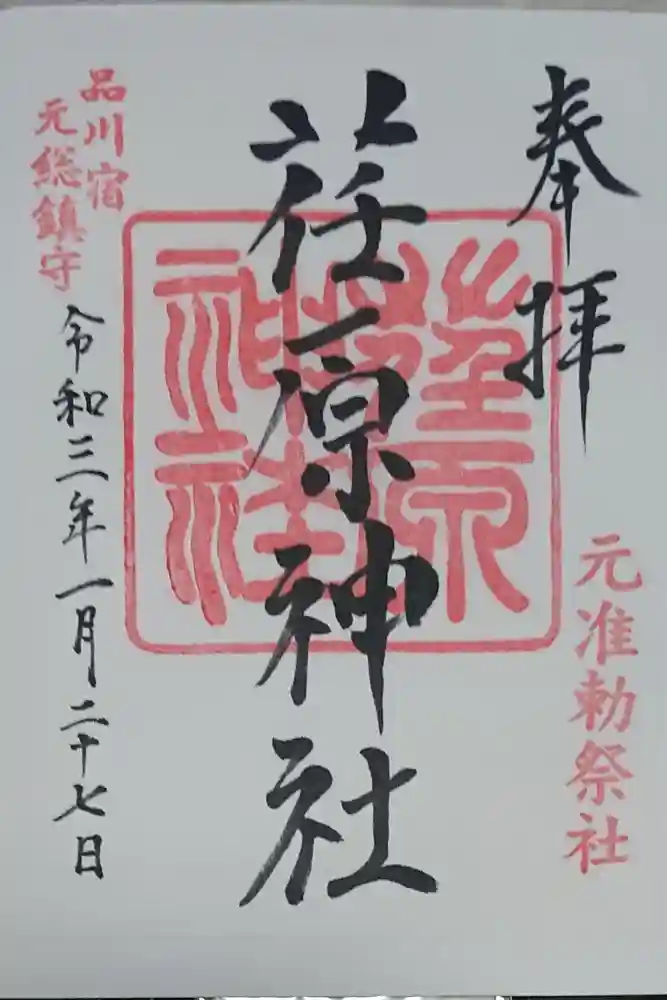 奉拝
元准勅祭社
荏原神社
品川宿
元総鎮守
令和三年一月二十七日